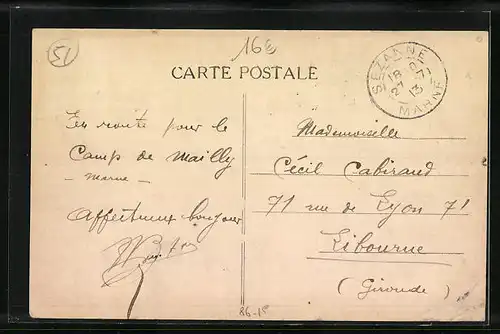 51
16e
CARTE POSTALE
SEZANNE
MARNE
En route pour le
Camp de Mailly
- Marne -
Affectueux bonjour
Mademoiselle
Cécil Cabiraud
71 rue de Lyon 71
Libourne
(Gironde)
86-15